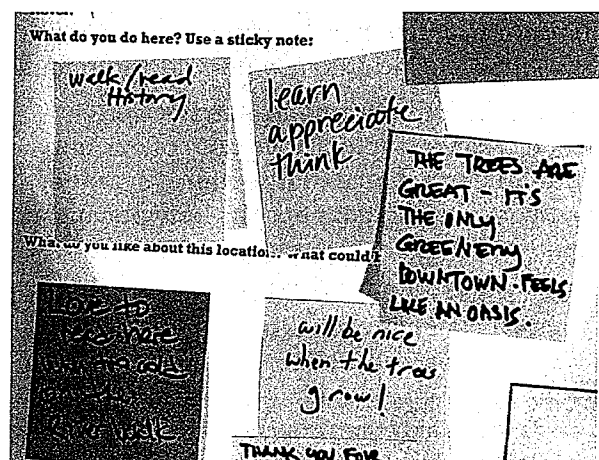 What do you do here? Use a sticky note:
Walk/read
History
learn
appreciate
think
THE TREES ARE
GREAT - IT'S
THE ONLY
GREENERY
DOWNTOWN. FEELS
LIKE AN OASIS.
What do you like about this location? What could
Love to
here
will be nice
when the trees
grow!
THANK YOU FOR